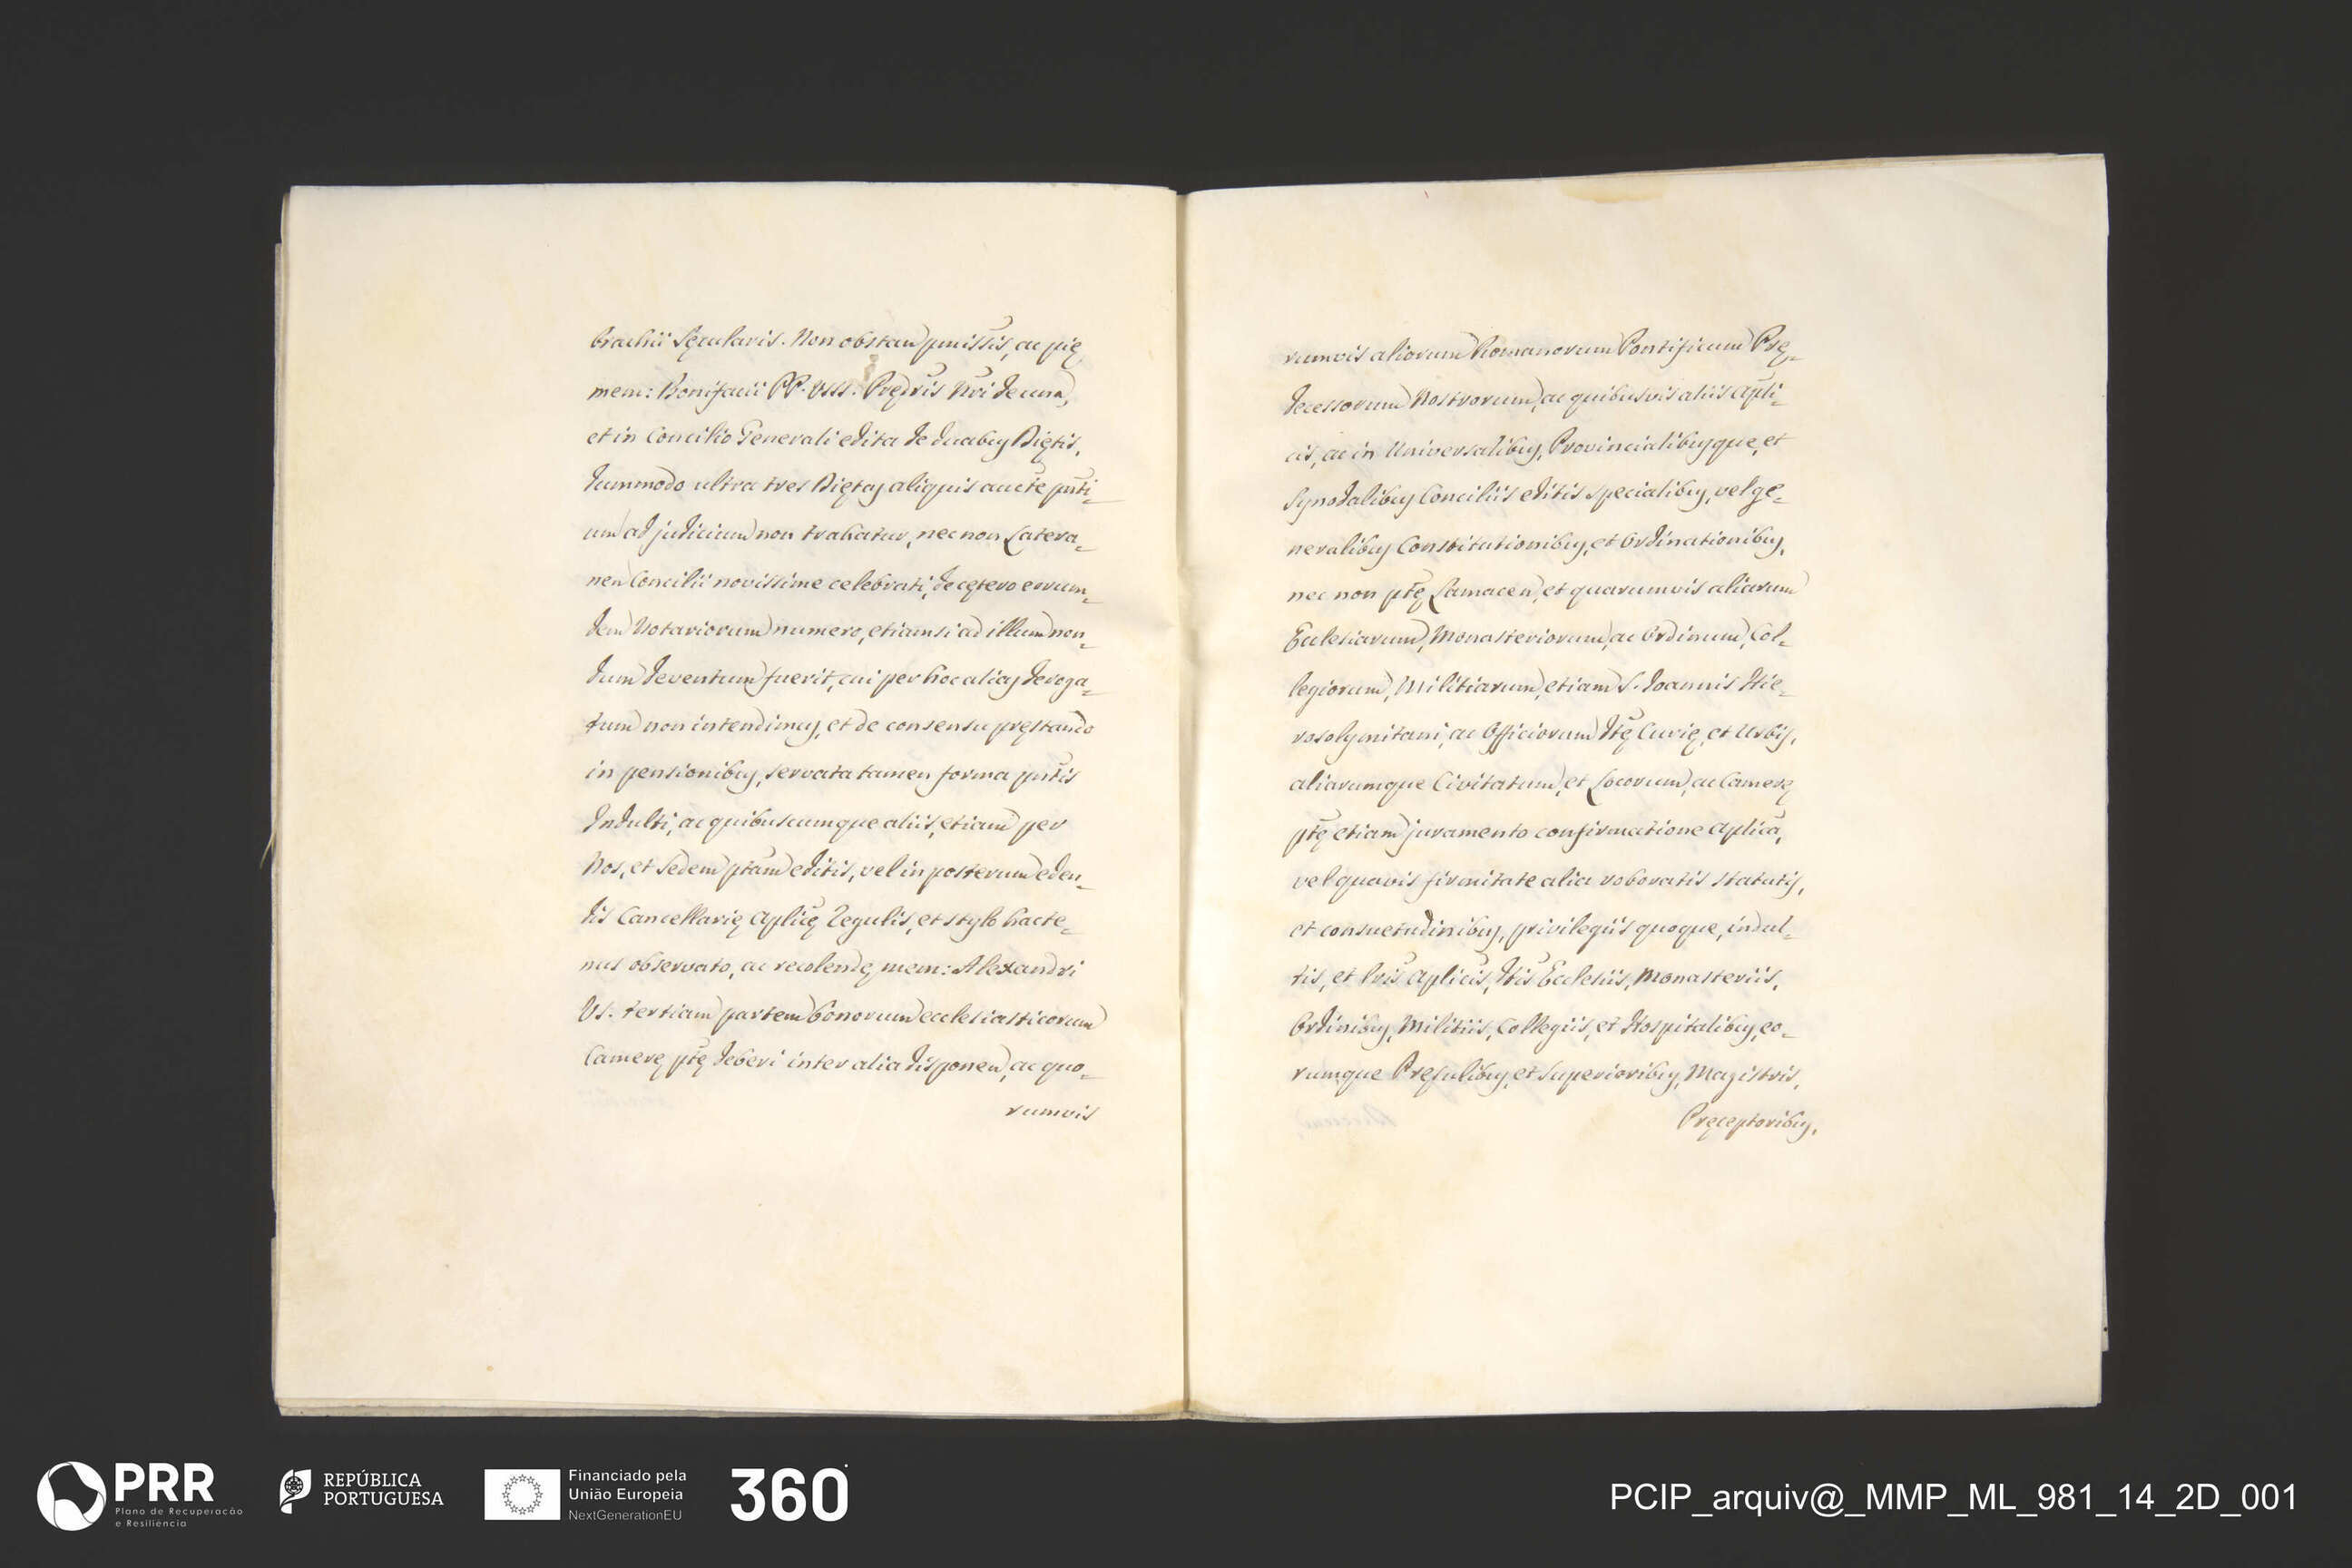 brachii Sęcularis. Non obstan pmissis, ac pię
mem: Bonifacii PP. VIII. Prędris Nri de una,
et in Concilio Generali edita de duabus Diętis,
dummodo ultra tres Diętas aliquis aucte pnti-
um ad judicium non trahatur, nec non Latera-
nen Concilii novissime celebrati, de cętero eorum-
dem Notariorum numero, etiamsi ad illum non-
dum deventum fuerit, cui per hoc alias deroga-
tum non intendimus, et de consensu pręstando
in pensionibus, servata tamen forma pntis
Indulti, ac quibuscumque aliis, etiam per
Nos, et Sedem ptam editis, vel in posterum eden-
dis Cancellarię Aplicę Regulis, et stylo hacte-
nus observato, ac recolendę mem: Alexandri
VI. tertiam partem bonorum ecclesiasticorum
Camerę ptę deberi inter alia disponen, ac quo-
rumvis
rumvis aliorum Romanorum Pontificum Prę-
decessorum Nostrorum, ac quibusvis aliis Apli-
cis, ac in Universalibus, Provincialibusque, et
Synodalibus Conciliis editis specialibus, vel ge-
neralibus Constitutionibus, et Ordinationibus,
nec non ptę Lamacen, et quarumvis aliarum
Ecclesiarum, Monasteriorum, ac Ordinum, Col-
legiorum, Militiarum, etiam S. Joannis Hie-
rosolymitani, ac Officiorum dtę Curię, et Urbis,
aliarumque Civitatum, et Locorum, ac Camerę
ptę etiam juramento confirmatione Aplica,
vel quavis firmitate alia roboratis statutis,
et consuetudinibus, privilegiis quoque, indul-
tis, et lris Aplicis, dtis Ecclesiis, Monasteriis,
Ordinibus, Militiis, Collegiis, et Hospitalibus, eo-
rumque Pręsulibus, et Superioribus, Magistris,
Pręceptoribus,
PRR
Plano de Recuperação
e Resiliência
REPÚBLICA
PORTUGUESA
Financiado pela
União Europeia
NextGenerationEU
360
PCIP_arquiv@_MMP_ML_981_14_2D_001